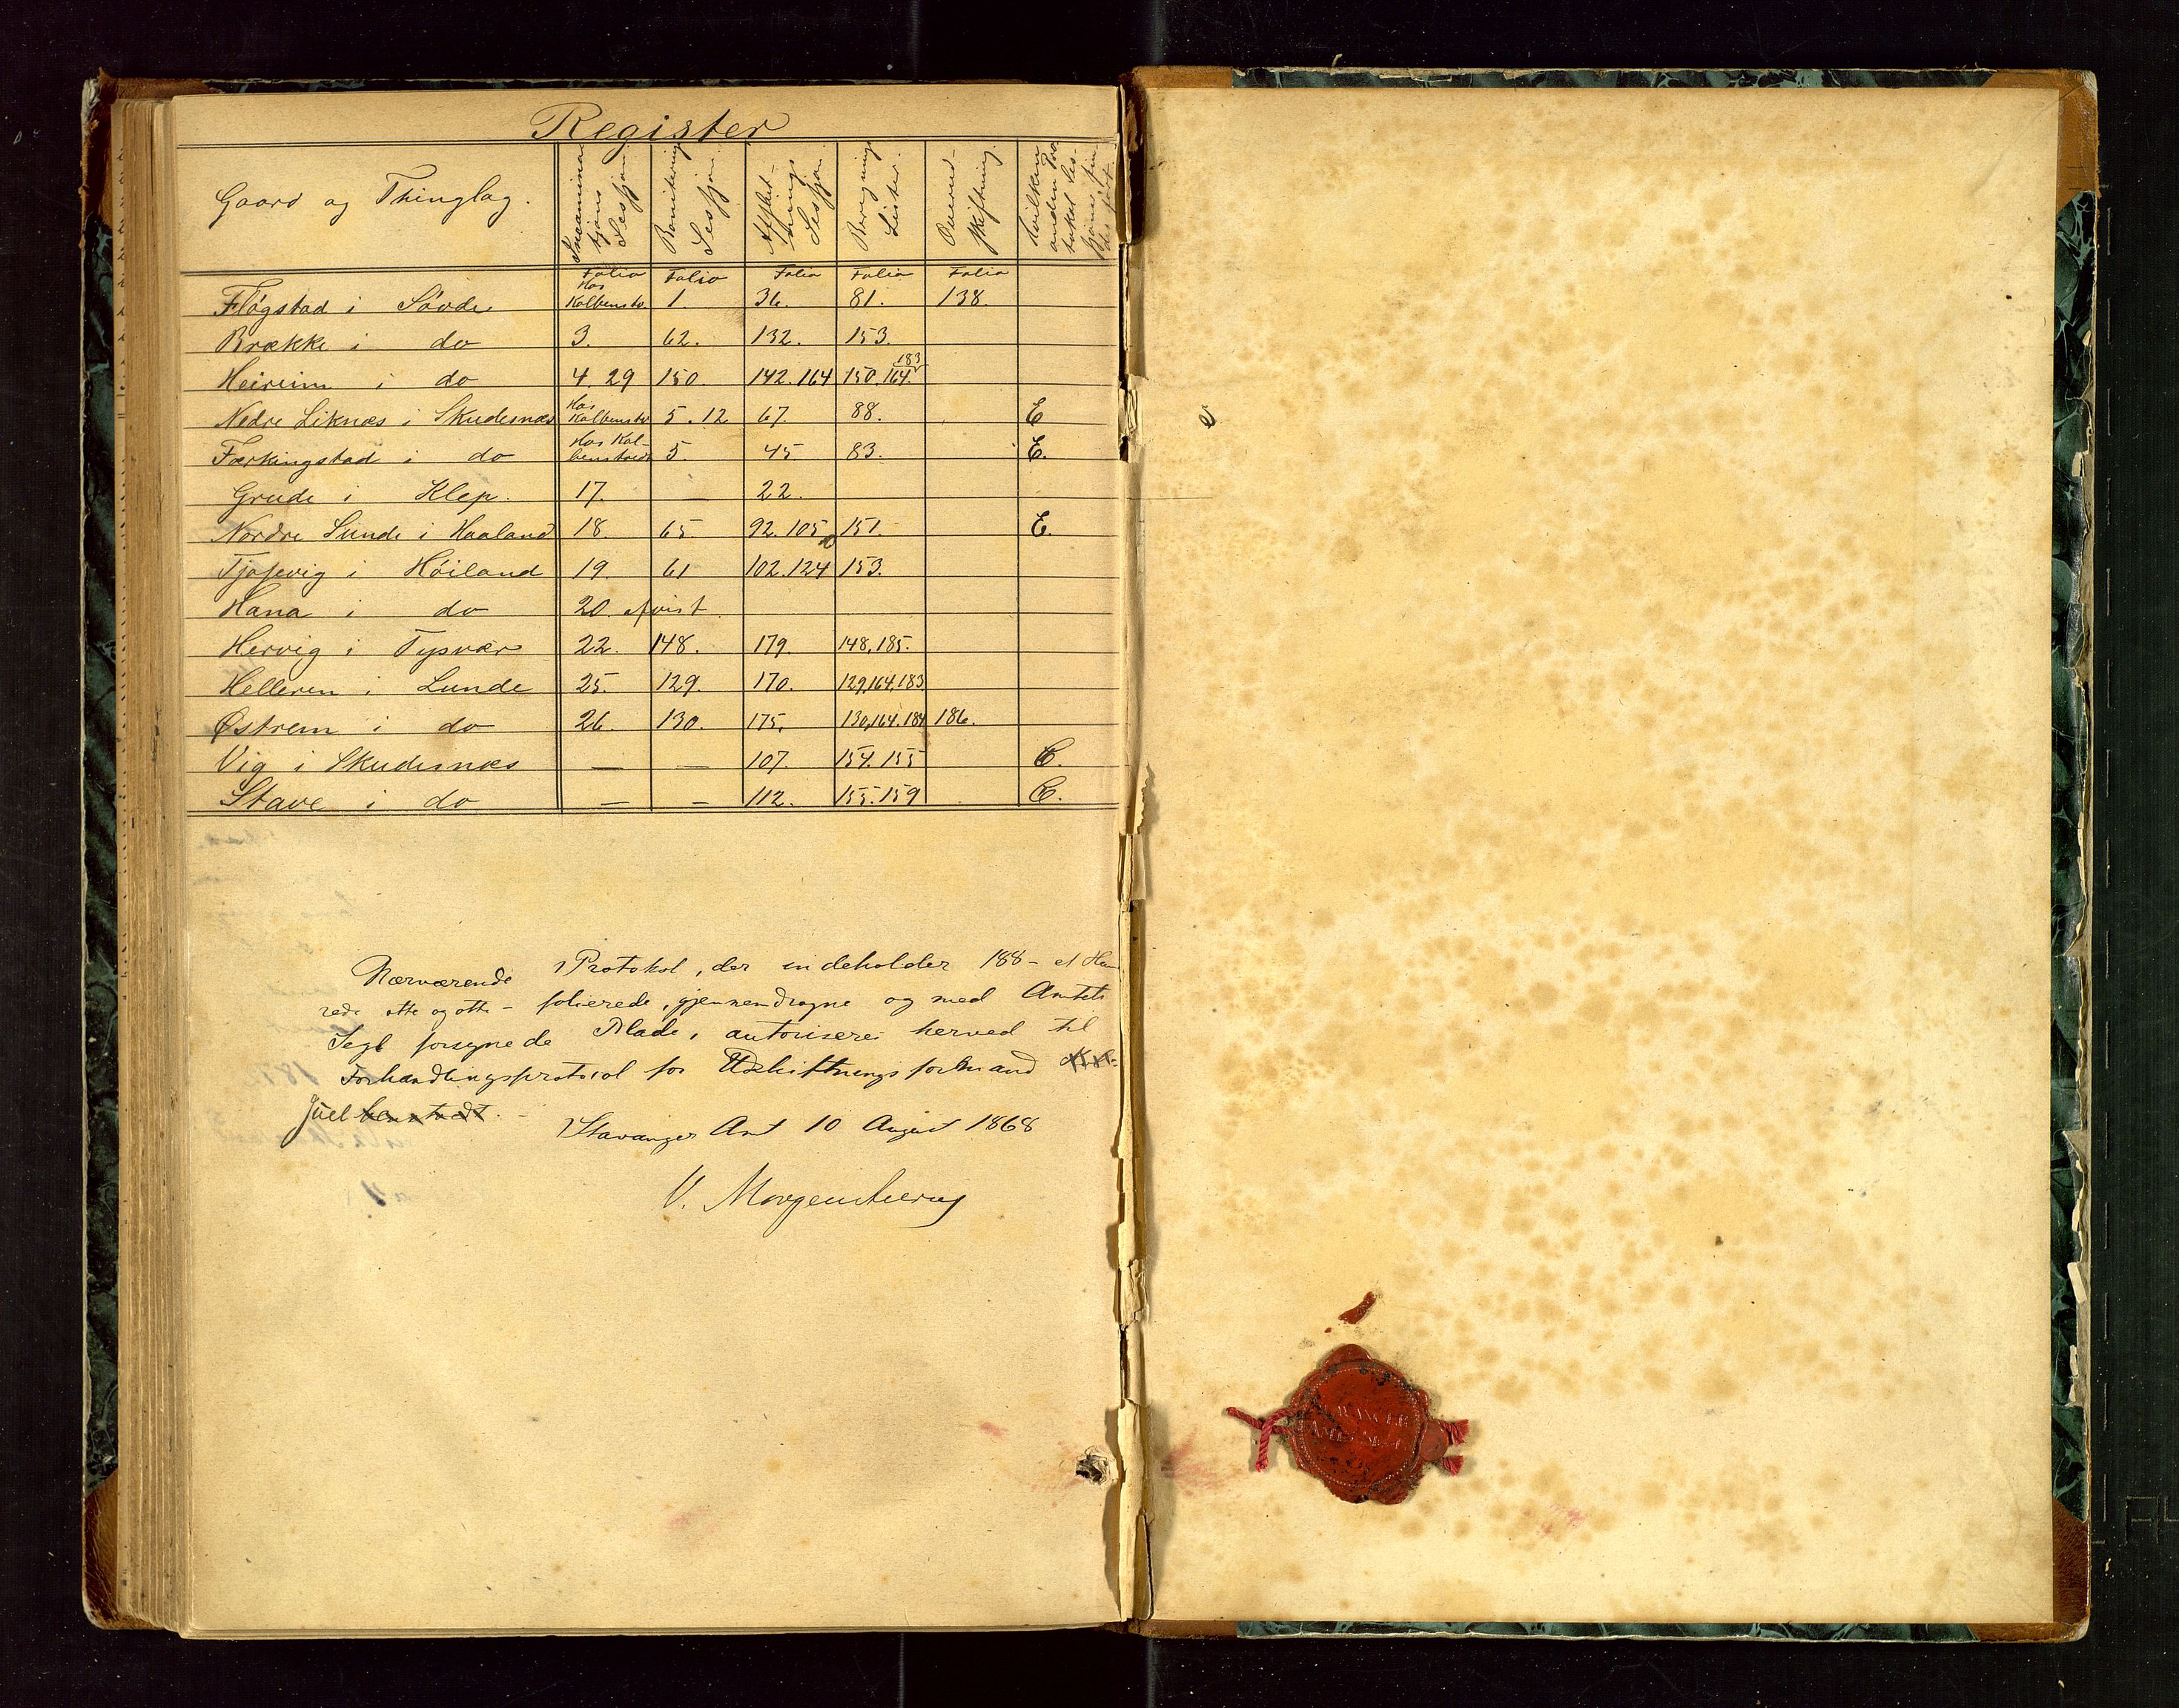 Register
Gaard og Thinglag. | Examina- tjons Sesjon | Boniterings Sesjon. | Afslut- nings Sesjon. | Beregnings Lister. | Overud- skiftning. | Hvilken anden Pro- tokol Ses-
Folio | Folio | Folio | Folio | Folio
Fløgstad i Søvde | Hos Kolbenstv. | 1 | 36. | 81. | 138.
Brække i do | 3. | 62. | 132. | 153.
Heireim i do | 4. 29 | 150. | 142. 164 | 150. 164. 183
Nedre Liknæs i Skudesnæs | Hos Kolbenstv | 5. 12 | 67. | 88. | E
Færkingstad i do | Hos Kol- benstvedt | 5. | 45 | 83. | E.
Grude i Klep. | 17. | — | 22.
Nordre Sunde i Haaland | 18. | 65. | 92. 105 | 151. | E.
Tjosevig i Høiland | 19. | 61 | 102. 124 | 153.
Hana i do | 20. Afvist
Hervig i Tysvær | 22. | 148. | 179. | 148, 185.
Helleren i Lunde | 25. | 129. | 170. | 129, 164, 183
Østrem i do | 26. | 130. | 175. | 130, 164. 184 | 186.
Vig i Skudesnæs | — | — | 107. | 154. 155 | C.
Stave i do | — | — | 112. | 155. 159 | C.
Nærværende Protokol, der indeholder 188 - et Hun
rede otte og otti - folierede, gjennemdragne og med Amtets
Segl forsynede Blade, autoriseres herved til
Forhandlingsprotocol for Udskiftningsformand
Juel benstvedt. -
Stavanger Amt 10 August 1868
V. Morgenstierne